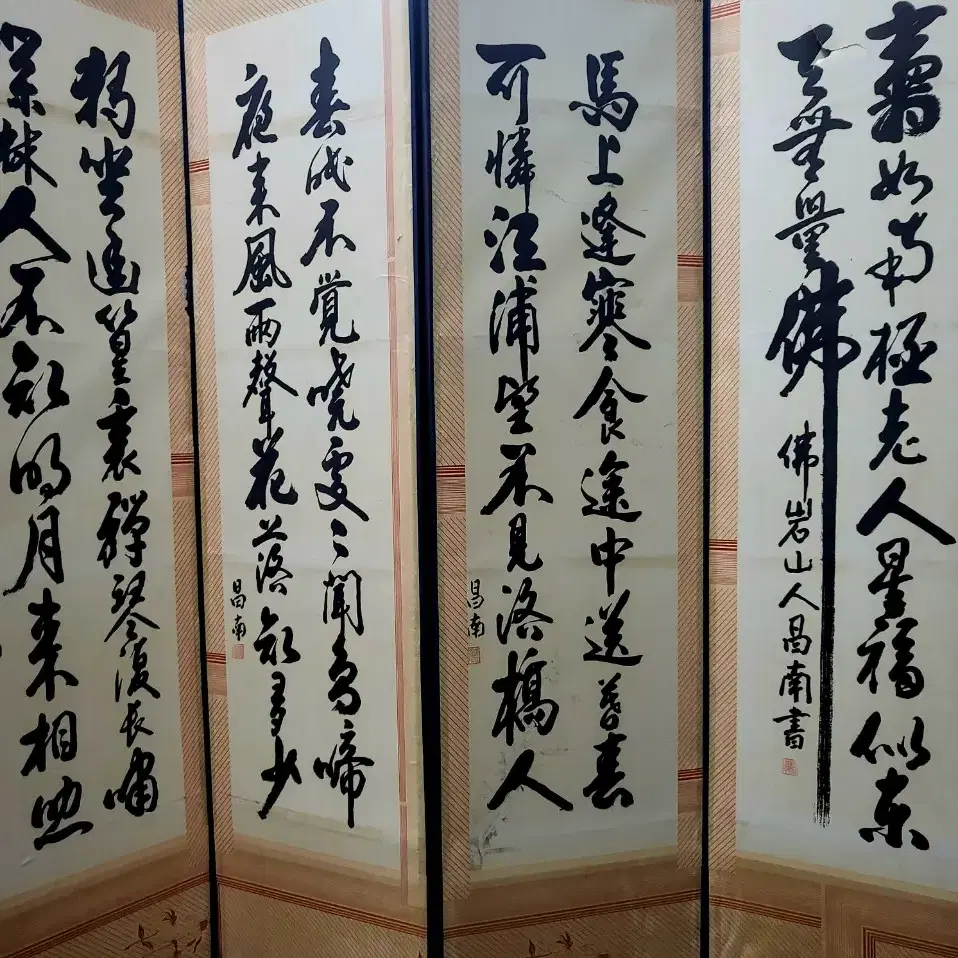 壽如南極老人星福似東
天無量佛
佛岩山人昌南書
馬上逢寒食途中送暮春
可憐江浦望不見洛橋人
昌南
春眠不覺曉處〻聞鳥啼
夜來風雨聲花落知多少
昌南
獨坐幽篁裏彈琴復長嘯
深林人不知明月來相照